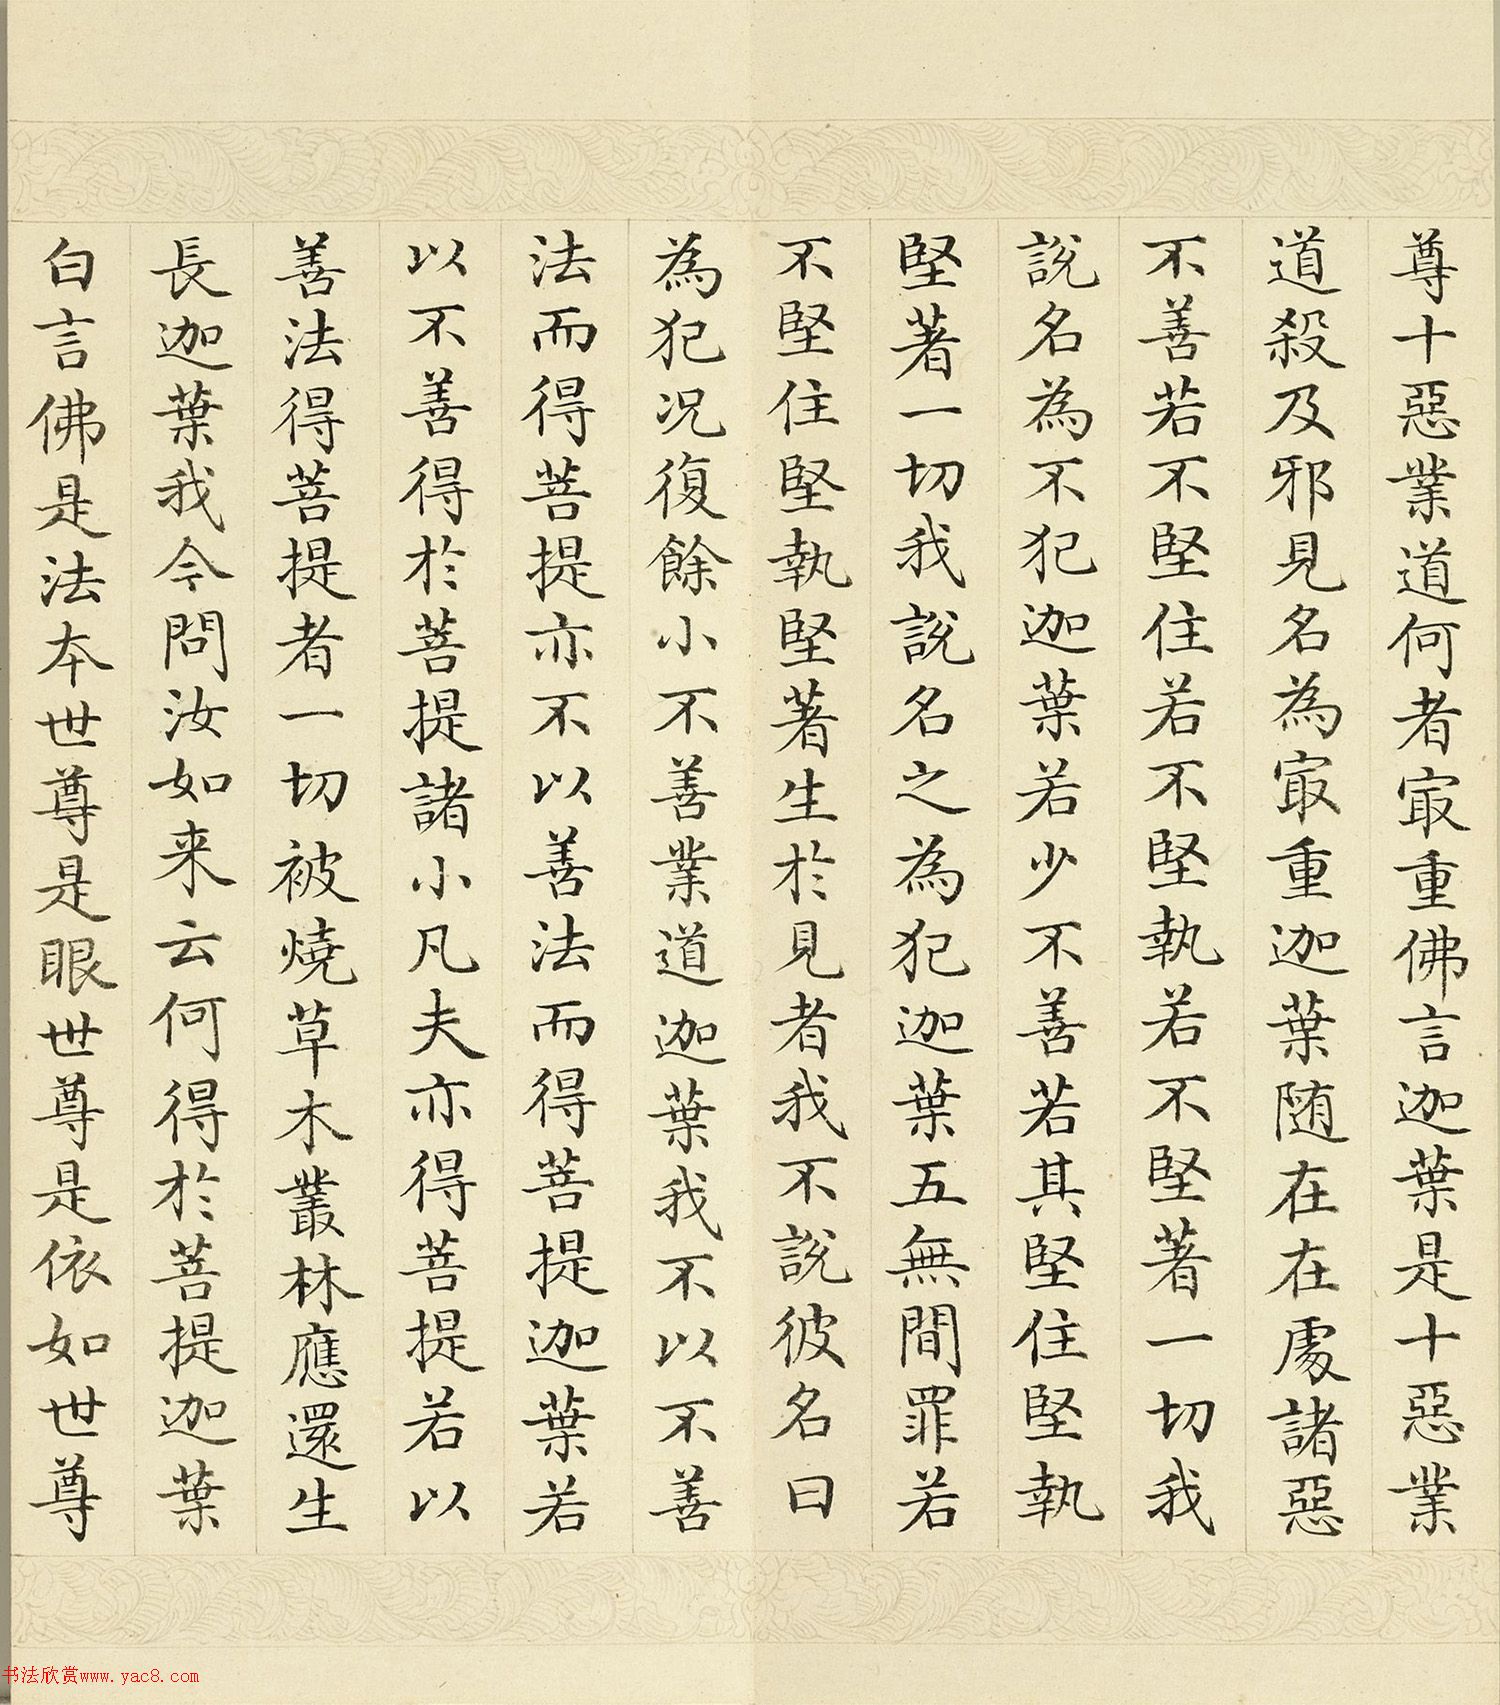 尊十惡業道何者㝡重佛言迦葉是十惡業
道殺及邪見名為㝡重迦葉随在在處諸惡
不善若不堅住若不堅執若不堅著一切我
說名為不犯迦葉若少不善若其堅住堅執
堅著一切我說名之為犯迦葉五無間罪若
不堅住堅執堅著生於見者我不說彼名曰
為犯况復餘小不善業道迦葉我不以不善
法而得菩提亦不以善法而得菩提迦葉若
以不善得於菩提諸小凡夫亦得菩提若以
善法得菩提者一切被燒草木叢林應還生
長迦葉我今問汝如来云何得於菩提迦葉
白言佛是法本世尊是眼世尊是依如世尊
书法欣赏www.yac8.com